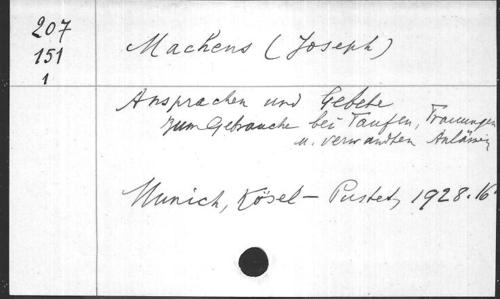 207
151
1
Mackens (Joseph)
Ansprachen und Gebete
zum Gebrauche bei Taufen, Trauungen
u. verwandten Anlässen
Munich, Kösel – Pustet, 1928. 16°